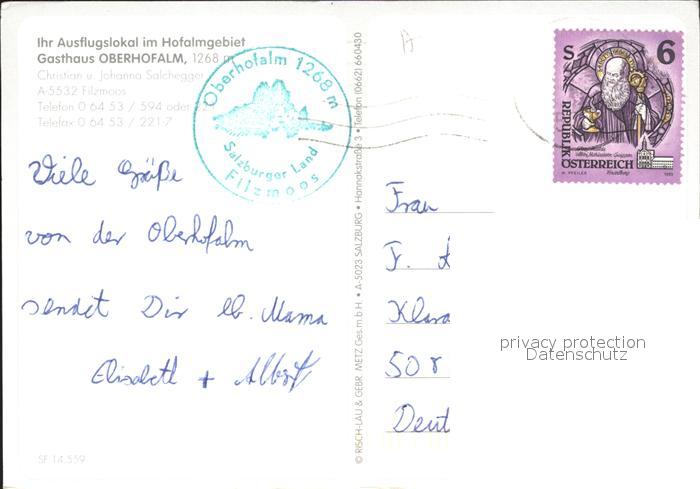 Ihr Ausflugslokal im Hofalmgebiet
Gasthaus OBERHOFALM, 1268 m
Christian u. Johanna Salchegger
A-5532 Filzmoos
Telefon 0 64 53 / 594 oder
Telefax 0 64 53 / 221-7
Oberhofalm 1268 m
Salzburger Land
Filzmoos
Viele Grüße
von der Oberhofalm
sendet Dir lb. Mama
Elisabeth + Albert
SF 14.559
© RISCH-LAU & GEBR. METZ Ges.m.b.H. • A-5023 SALZBURG • Hannakstraße 3 • Telefon (0662) 660430
S 6
REPUBLIK
ÖSTERREICH
1993
Frau
F.
Klara
50
Deut
privacy protection
Datenschutz